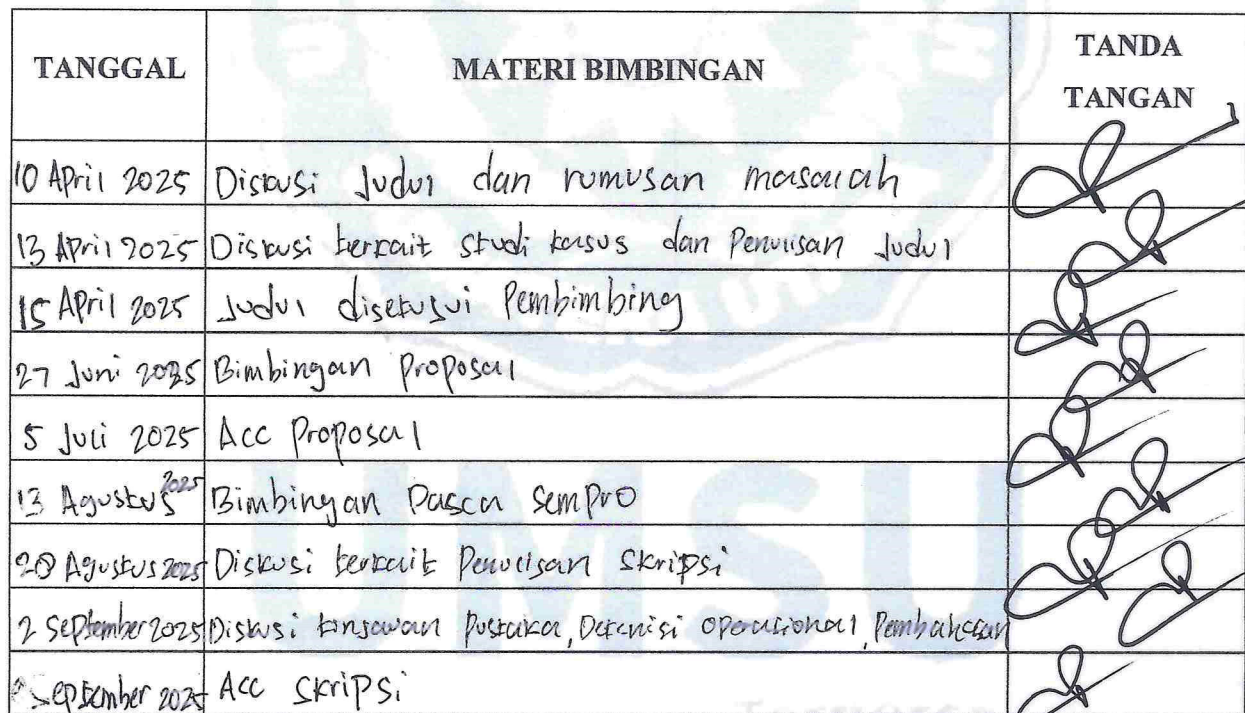 TANGGAL
MATERI BIMBINGAN
TANDA
TANGAN
10 April 2025 Diskusi Judul dan rumusan masalah
13 April 2025 Diskusi terkait studi kasus dan Penulisan Judul
15 April 2025 Judul disetujui Pembimbing
27 Juni 2025 Bimbingan Proposal
5 Juli 2025 Acc Proposal
13 Agustus 2025 Bimbingan Pasca Sempro
20 Agustus 2025 Diskusi terkait Penulisan Skripsi
2 September 2025 Diskusi Pustaka, Operasional, Pembahasan
September 2025 Acc Skripsi
UMSU